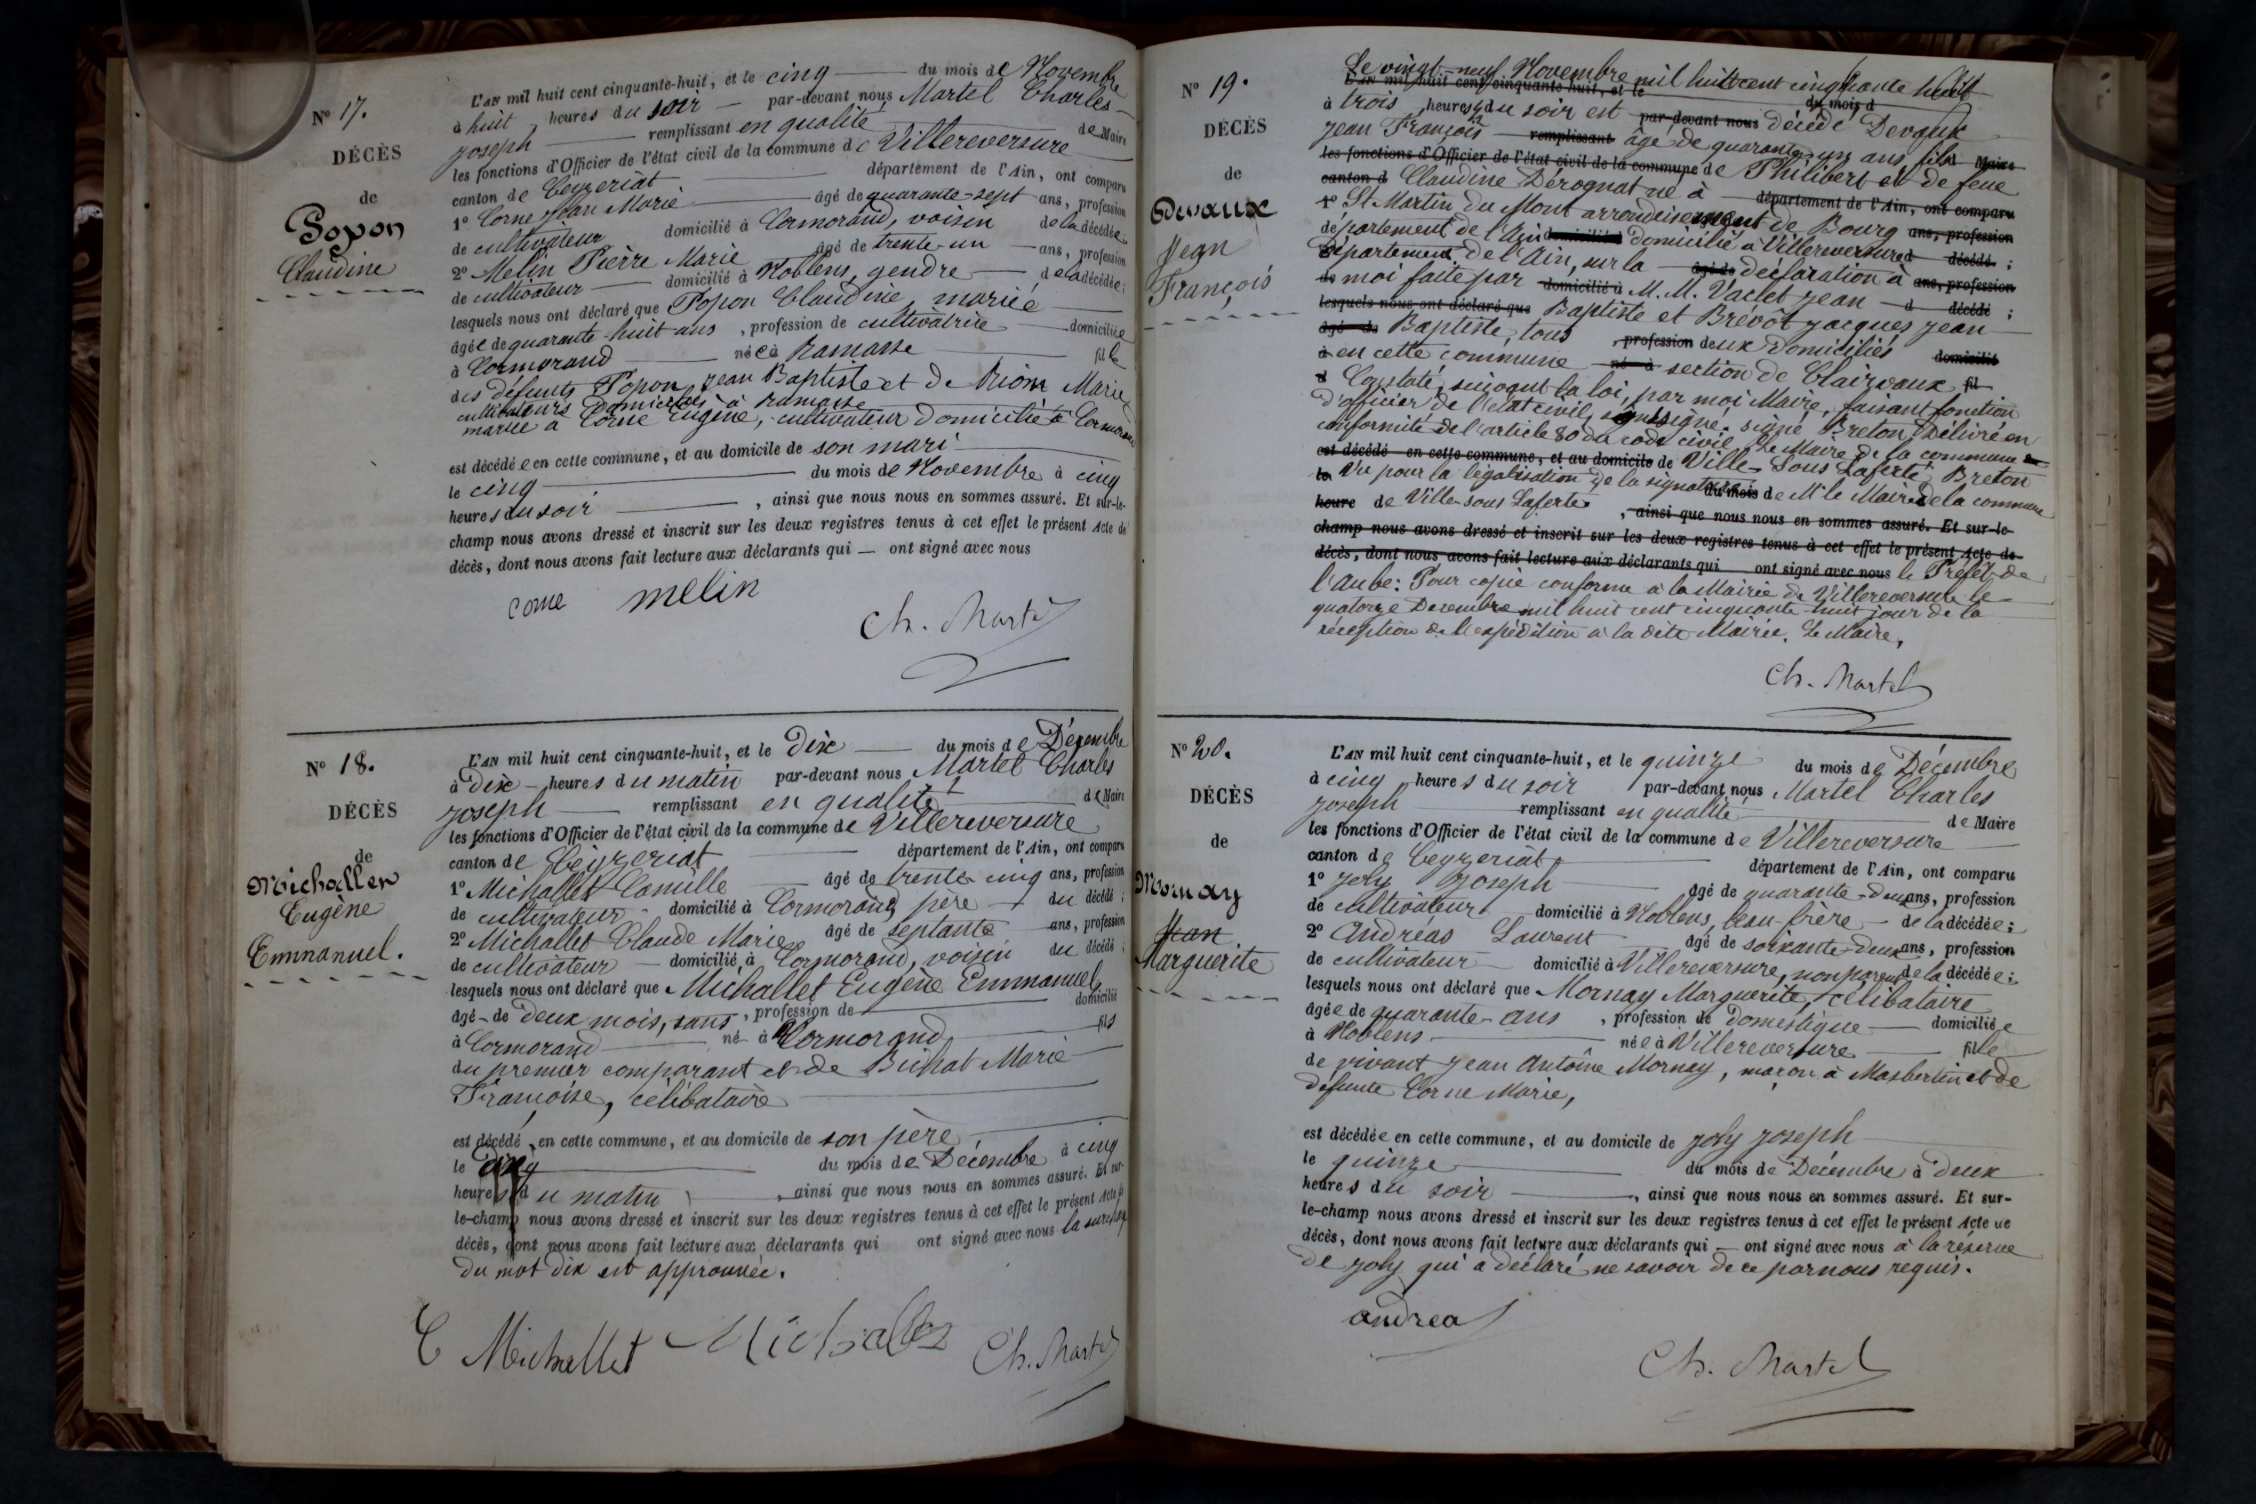 N° 17.
DÉCÈS
de
Popon
Claudine
L'AN mil huit cent cinquante-huit, et le cinq du mois de Novembre
à huit heures du soir par-devant nous Martel Charles
Joseph remplissant en qualité de Maire
les fonctions d'Officier de l'état civil de la commune de Villereversure
canton de Ceyzeriat département de l'Ain, ont comparu
1° Corne Jean Marie âgé de quarante-sept ans, profession
de cultivateur domicilié à Cormorand, voisin de la décédée;
2° Melin Pierre Marie âgé de trente-un ans, profession
de cultivateur domicilié à Noblens, gendre de la décédée;
lesquels nous ont déclaré que Popon Claudine, mariée
âgée de quarante-huit ans, profession de cultivatrice domiciliée
à Cormorand née à Ramasse fille
des défunts Popon Jean Baptiste et de Riom Marie
cultivateurs domiciliés à Ramasse
mariée à Corne Eugène, cultivateur domicilié à Cormorand
est décédée en cette commune, et au domicile de son mari
le cinq du mois de Novembre à cinq
heures du soir, ainsi que nous nous en sommes assuré. Et sur-le-
champ nous avons dressé et inscrit sur les deux registres tenus à cet effet le présent Acte de
décès, dont nous avons fait lecture aux déclarants qui ont signé avec nous
corne melin
Ch. Martel
N° 18.
DÉCÈS
de
Michallet
Eugène
Emmanuel.
L'AN mil huit cent cinquante-huit, et le dix du mois de Décembre
à dix heures du matin par-devant nous Martel Charles
Joseph remplissant en qualité de Maire
les fonctions d'Officier de l'état civil de la commune de Villereversure
canton de Ceyzeriat département de l'Ain, ont comparu
1° Michallet Camille âgé de trente-cinq ans, profession
de cultivateur domicilié à Cormorand père du décédé;
2° Michallet Claude Marie âgé de septante ans, profession
de cultivateur domicilié à Cormorand, voisin du décédé;
lesquels nous ont déclaré que Michallet Eugène Emmanuel
âgé de deux mois, sans, profession de domicilié
à Cormorand né à Cormorand fils
du premier comparant et de Bichat Marie
Françoise, célibataire
est décédé en cette commune, et au domicile de son père
le dix du mois de Décembre à cinq
heures du matin, ainsi que nous nous en sommes assuré. Et sur-
le-champ nous avons dressé et inscrit sur les deux registres tenus à cet effet le présent Acte de
décès, dont nous avons fait lecture aux déclarants qui ont signé avec nous la surcharge
du mot dix est approuvée.
C Michallet Michallet Ch. Martel
N° 19.
DÉCÈS
de
Devaux
Jean
François
Le vingt-neuf Novembre mil huit cent cinquante huit
L'AN mil huit cent cinquante-huit, et le du mois d
à trois heures du soir est par-devant nous décédé Devaux
Jean François remplissant âgé de quarante-un ans, fils Maire
les fonctions d'Officier de l'état civil de la commune de Philibert et de feue
canton d Claudine Dérognat né à département de l'Ain, ont comparu
1° St Martin du Mont arrondissement de Bourg ans, profession
département de l'Ain domicilié à Villereversure d décédé;
département de l'Ain, sur la âgé de déclaration à ans, profession
de moi faite par domicilié à M. M. Vaclet Jean d décédé;
lesquels nous ont déclaré que Baptiste et Brevôt Jacques Jean
âgé de Baptiste, tous profession deux domiciliés domicilié
à en cette commune né à section de Clairvaux fil
d Constaté, suivant la loi, par moi Maire, faisant fonction
d'officier de l'état civil, soussigné. signé Breton. Délivré en
conformité de l'article 80 du code civil, Le Maire de la commune
est décédé en cette commune, et au domicile de Ville-Sous Laferté, Breton
le Vu pour la légalisation de la signature du mois de Mr le Maire de la commune
heure de Ville sous Laferté, ainsi que nous nous en sommes assuré. Et sur-le-
champ nous avons dressé et inscrit sur les deux registres tenus à cet effet le présent Acte de
décès, dont nous avons fait lecture aux déclarants qui ont signé avec nous le Préfet de
l'Aube: Pour copie conforme à la Mairie de Villereversure le
quatorze Décembre mil huit cent cinquante-huit jour de la
réception de l'expédition à la dite Mairie. Le Maire,
Ch. Martel
N° 20.
DÉCÈS
de
Mornay
Jean
Marguerite
L'AN mil huit cent cinquante-huit, et le quinze du mois de Décembre
à cinq heures du soir par-devant nous Martel Charles
Joseph remplissant en qualité de Maire
les fonctions d'Officier de l'état civil de la commune de Villereversure
canton de Ceyzeriat département de l'Ain, ont comparu
1° Joly Joseph âgé de quarante-deux ans, profession
de cultivateur domicilié à Noblens, beau-frère de la décédée;
2° Andréas Laurent âgé de soixante-deux ans, profession
de cultivateur domicilié à Villereversure, non parent de la décédée;
lesquels nous ont déclaré que Mornay Marguerite, célibataire
âgée de quarante-ans, profession de domestique domiciliée
à Noblens née à Villereversure fille
de vivant Jean Antoine Mornay, maçon à Masbertin et de
défunte Corne Marie,
est décédée en cette commune, et au domicile de Joly Joseph
le quinze du mois de Décembre à deux
heures du soir, ainsi que nous nous en sommes assuré. Et sur-
le-champ nous avons dressé et inscrit sur les deux registres tenus à cet effet le présent Acte de
décès, dont nous avons fait lecture aux déclarants qui ont signé avec nous à la réserve
de Joly qui a déclaré ne savoir de ce par nous requis.
andreas
Ch. Martel